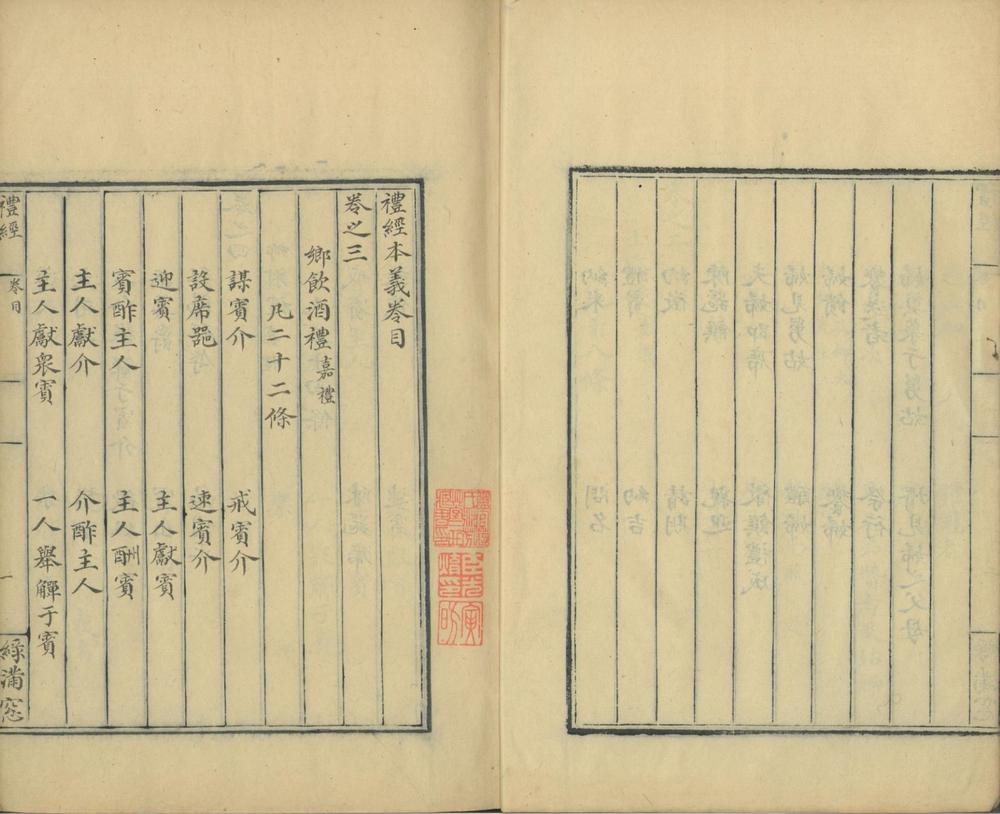 禮經本義卷目
卷之三
鄉飲酒禮嘉禮
凡二十二條
謀賓介 戒賓介
設席器 速賓介
迎賓 主人獻賓
賓酢主人 主人酬賓
主人獻介 介酢主人
主人獻衆賓 一人舉觶于賓
禮經 卷目 綠滿窓